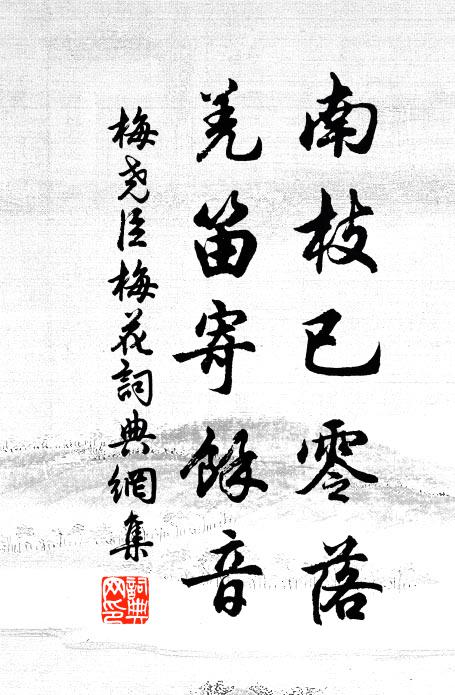 南枝已零落
羌笛寄餘音
梅堯臣梅花詞典網集
詞典網印